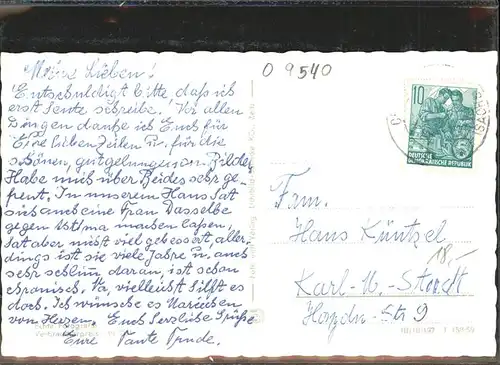 O 9540
Meine Lieben!
Entschuldigt bitte, daß ich
erst heute schreibe. Vor allen
Dingen danke ich Euch für
Eure lieben Zeilen u. für die
schönen, gutgelungenen Bilder
Habe mich über Beides sehr ge-
freut. In unserem Haus hat
sich auch eine Frau Dasselbe
gegen Asthma machen laßen,
hat aber nicht viel gebessert, aller-
dings ist sie viele Jahre u. auch
sehr schlimm daran, ist schon
chronisch. Na, vielleicht hilft es
doch. Ich wünsche es
von Herzen. Euch herzliche Grüße
Eure Tante Trude.
Echte Fotografie
10
DEUTSCHE
DEMOKRATISCHE REPUBLIK
Fam.
Hans Küntzel
18,-
Karl-M.-Stadt
Str 9